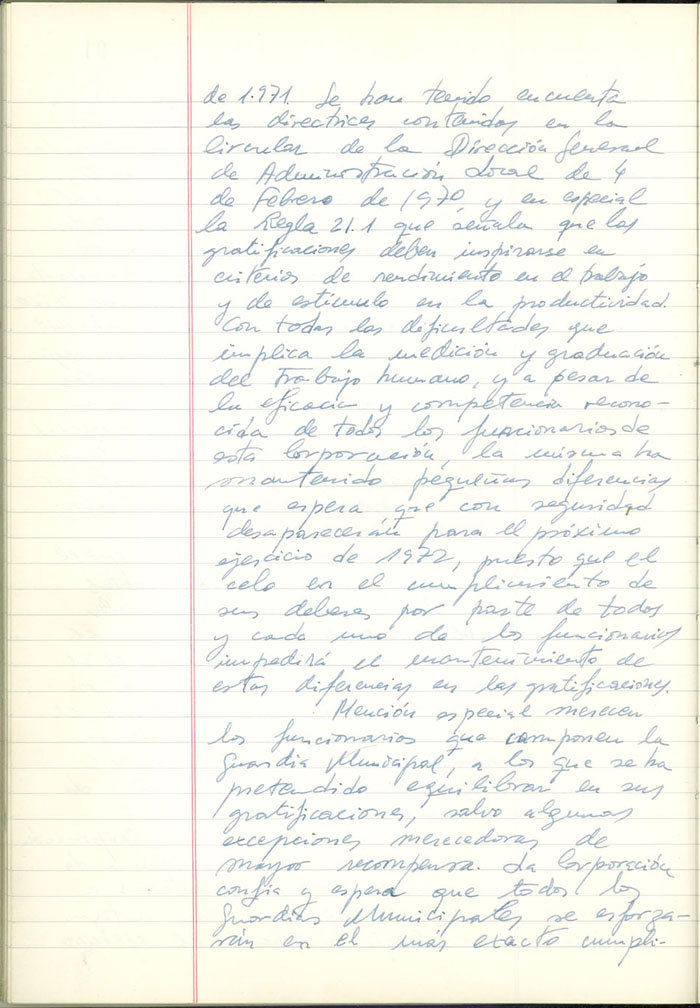 de 1.971. Se han tenido en cuenta
las directrices contenidas en la
Circular de la Dirección General
de Administración Local de 4
de Febrero de 1970, y en especial
la Regla 21.1 que señala que las
gratificaciones deben inspirarse en
criterios de rendimiento en el trabajo
y de estímulo en la productividad.
Con todas las dificultades que
implica la medición y graduación
del trabajo humano, y a pesar de
la eficacia y competencia recono-
cida de todos los funcionarios de
esta Corporación, la misma ha
mantenido pequeñas diferencias
que espera que con seguridad
desaparecerán para el próximo
ejercicio de 1972, puesto que el
celo en el cumplimiento de
sus deberes por parte de todos
y cada uno de los funcionarios
impedirá el mantenimiento de
estas diferencias en las gratificaciones.
Mención especial merecen
los funcionarios que componen la
Guardia Municipal, a los que se ha
pretendido equilibrar en sus
gratificaciones, salvo algunas
excepciones merecedoras de
mayor recompensa. La Corporación
confía y espera que todos los
Guardias Municipales se esforza-
rán en el más exacto cumpli-